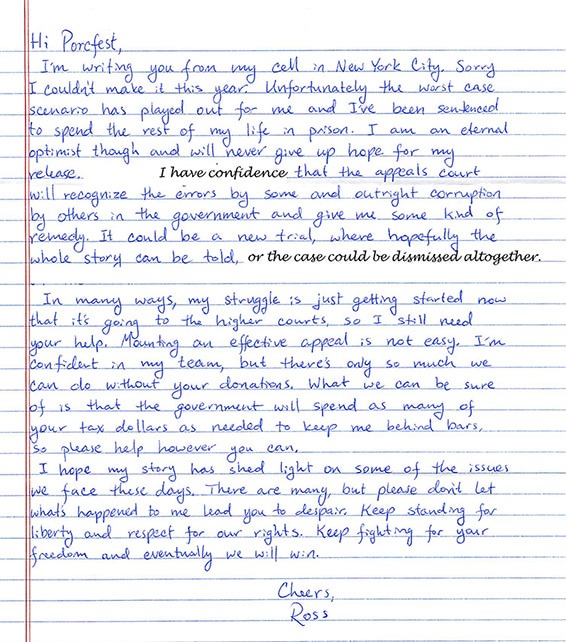 Hi Porcfest,
I'm writing you from my cell in New York City. Sorry
I couldn't make it this year. Unfortunately the worst case
scenario has played out for me and I've been sentenced
to spend the rest of my life in prison. I am an eternal
optimist though and will never give up hope for my
release. I have confidence that the appeals court
will recognize the errors by some and outright corruption
by others in the government and give me some kind of
remedy. It could be a new trial, where hopefully the
whole story can be told, or the case could be dismissed altogether.
In many ways, my struggle is just getting started now
that it's going to the higher courts, so I still need
your help. Mounting an effective appeal is not easy. I'm
confident in my team, but there's only so much we
can do without your donations. What we can be sure
of is that the government will spend as many of
your tax dollars as needed to keep me behind bars,
so please help however you can.
I hope my story has shed light on some of the issues
we face these days. There are many, but please don't let
whats happened to me lead you to despair. Keep standing for
liberty and respect for our rights. Keep fighting for your
freedom and eventually we will win.
Cheers,
Ross